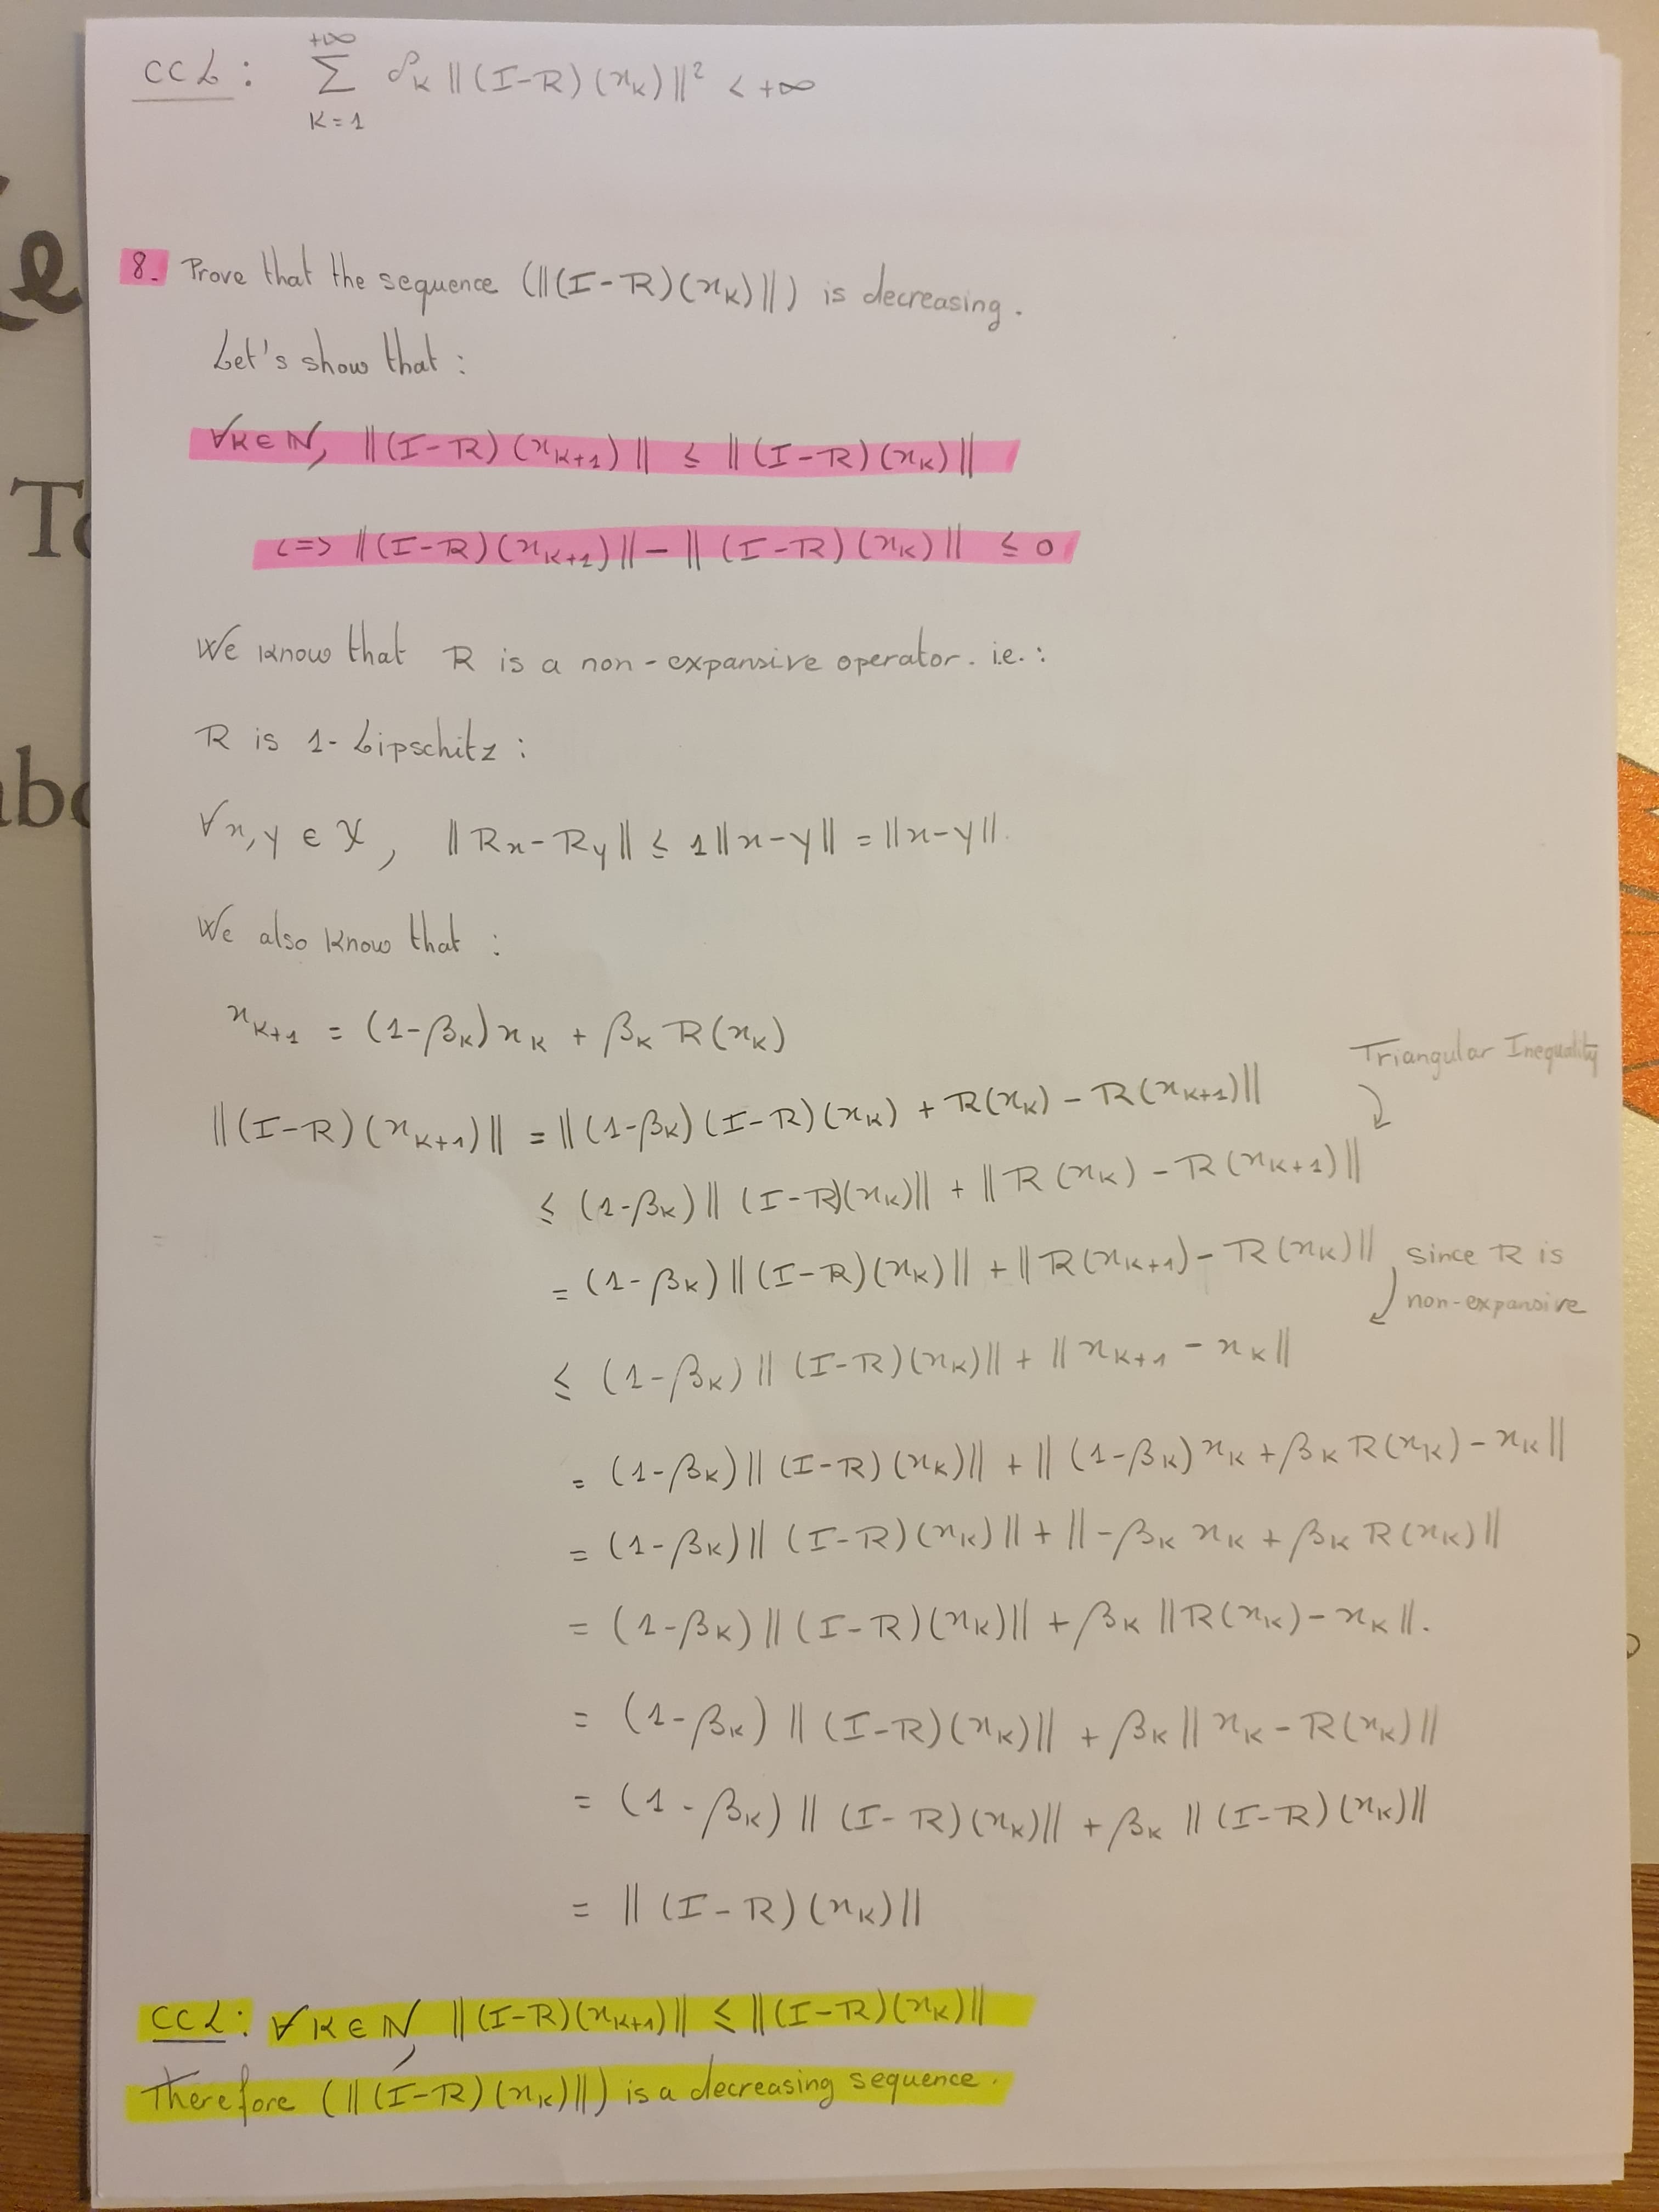 CCL : +∞ Σ K=1 ρ_K ||(I-R)(x_K)||² < +∞
8. Prove that the sequence (||(I-R)(x_K)||) is decreasing.
Let's show that :
∀K∈ℕ, ||(I-R)(x_{K+1})|| ≤ ||(I-R)(x_K)||
<=> ||(I-R)(x_{K+1})|| - ||(I-R)(x_K)|| ≤ 0
We know that R is a non-expansive operator. i.e. :
R is 1-Lipschitz :
∀x,y ∈ X, ||Rx-Ry|| ≤ 1||x-y|| = ||x-y||.
We also know that :
x_{K+1} = (1-β_K)x_K + β_K R(x_K)
Triangular Inequality
||(I-R)(x_{K+1})|| = ||(1-β_K)(I-R)(x_K) + R(x_K) - R(x_{K+1})||
≤ (1-β_K)||(I-R)(x_K)|| + ||R(x_K) - R(x_{K+1})||
= (1-β_K)||(I-R)(x_K)|| + ||R(x_{K+1}) - R(x_K)||
since R is
non-expansive
≤ (1-β_K)||(I-R)(x_K)|| + ||x_{K+1} - x_K||
= (1-β_K)||(I-R)(x_K)|| + ||(1-β_K)x_K + β_K R(x_K) - x_K||
= (1-β_K)||(I-R)(x_K)|| + ||-β_K x_K + β_K R(x_K)||
= (1-β_K)||(I-R)(x_K)|| + β_K ||R(x_K) - x_K||.
= (1-β_K)||(I-R)(x_K)|| + β_K ||x_K - R(x_K)||
= (1-β_K)||(I-R)(x_K)|| + β_K ||(I-R)(x_K)||
= ||(I-R)(x_K)||
CCL : ∀K∈ℕ, ||(I-R)(x_{K+1})|| ≤ ||(I-R)(x_K)||
Therefore (||(I-R)(x_K)||) is a decreasing sequence.